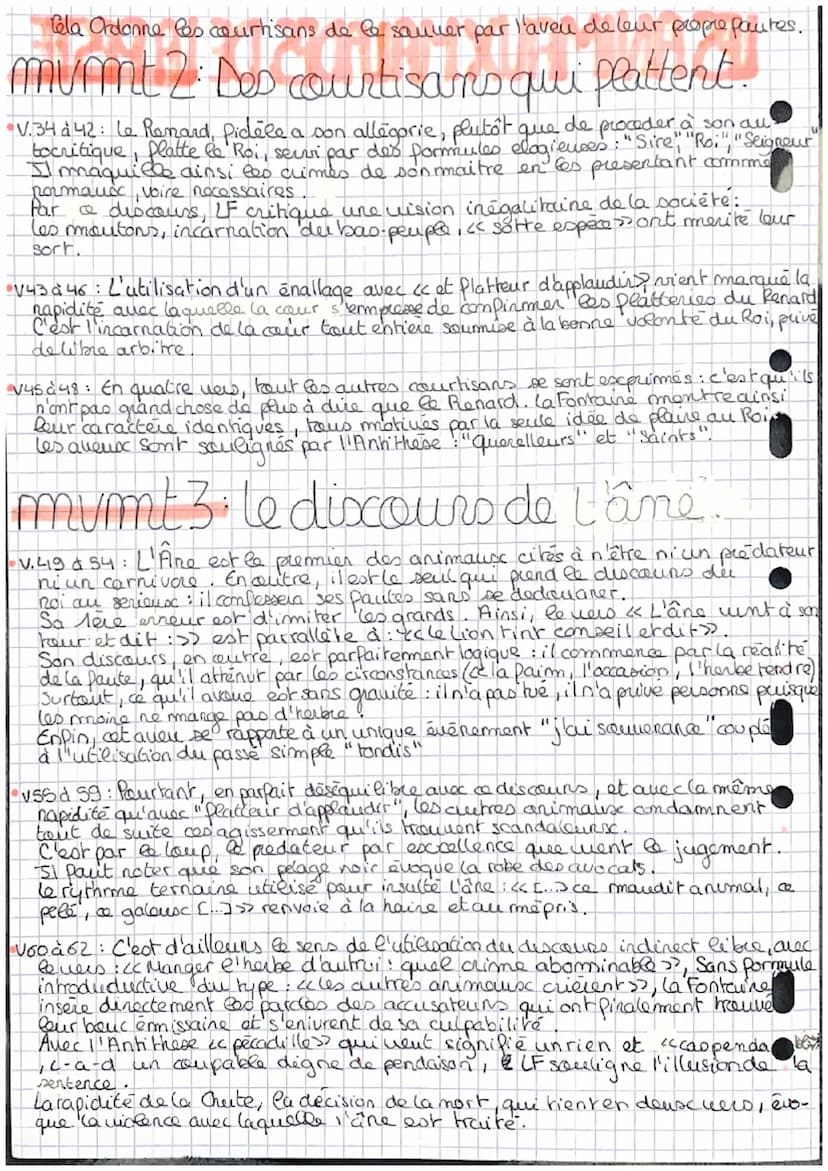 Cela Ordonne les courtisans de le sauver par l'aveu de leur propre fautes.
mvmt 2 : Des courtisans qui flattent.
• V.34 à 42 : Le Renard, fidèle a son allégorie, plutôt que de proceder à son au-
tocritique, flatte le Roi, servi par des formules elogieuses : "Sire", "Roi", "Seigneur"
Il maquille ainsi les crimes de son maitre en les presentant comme
normaux, voire nécessaires.
Par ce discours, LF critique une vision inégalitaire de la société :
les moutons, incarnation du bas-peuple, << sotte espèce >> ont merité leur
sort.
• V43 à 46 : L'utilisation d'un énallage avec << et flatteur d'applaudir >> vient marqué la
rapidité avec laquelle la cour s'empresse de confirmer les flatteries du Renard
C'est l'incarnation de la cour tout entière soumise à la bonne volonté du Roi, privé
de libre arbitre.
• V45 à 48 : En quatre vers, tout les autres courtisans se sont exprimés : c'est qu'ils
n'ont pas grand chose de plus à dire que le Renard. La Fontaine montre ainsi
leur caractère identiques, tous motivés par la seule idée de plaire au Roi
Les aveux sont soulignés par l'Antithèse : "Querelleurs" et "Saints".
mvmt 3 : le discours de l'âne.
• V.49 à 54 : L'Âne est le premier des animaux cités à n'être ni un prédateur
ni un carnivore. En outre, il est le seul qui prend le discours du
roi au serieux : il confessera ses fautes sans se dedouaner.
Sa 1ère erreur est d'imiter les grands. Ainsi, le vers << L'âne vint à son
tour et dit : >> est parrallèle à : << le Lion tint conseil et dit >>.
Son discours, en outre, est parfaitement logique : il commence par la réalité
de la faute, qu'il atténue par les circonstances (<< la faim, l'occasion, l'herbe tendre)
Surtout, ce qu'il avoue est sans gravité : il n'a pas tué, il n'a privé personne puisque
les moine ne mange pas d'herbe !
Enfin, cet aveu se rapporte à un unique évènement "j'ai souvenance" couplé
à l'utilisation du passé simple "tondis"
• V55 à 59 : Pourtant, en parfait déséquilibre avec ce discours, et avec la même
rapidité qu'avec "flatteur d'applaudir", les autres animaux condamnent
tout de suite ces agissement qu'ils trouvent scandaleux.
C'est par le loup, le predateur par excellence que vient le jugement.
Il faut noter que son pelage noir évoque la robe des avocats.
Le rythme ternaire utilisé pour insulté l'âne : << [...] ce maudit animal, ce
pelé, ce galeux [...] >> renvoie à la haine et au mépris.
• V60 à 62 : C'est d'ailleurs le sens de l'utilisation du discours indirect libre, avec
le vers : << Manger l'herbe d'autrui : quel crime abominable >>, Sans formule
introductive du type : << les autres animaux crièrent >>, La Fontaine
insère directement les paroles des accusateurs qui ont finalement trouvé
leur bouc émissaire et s'enivrent de sa culpabilité.
Avec l'Antithèse << pécadille >> qui veut signifié un rien et << cas pendable >>
, c-a-d un coupable digne de pendaison, LF souligne l'illusion de la
sentence.
La rapidité de la Chute, la décision de la mort, qui tient en deux vers, évo-
que la violence avec laquelle l'âne est traité.